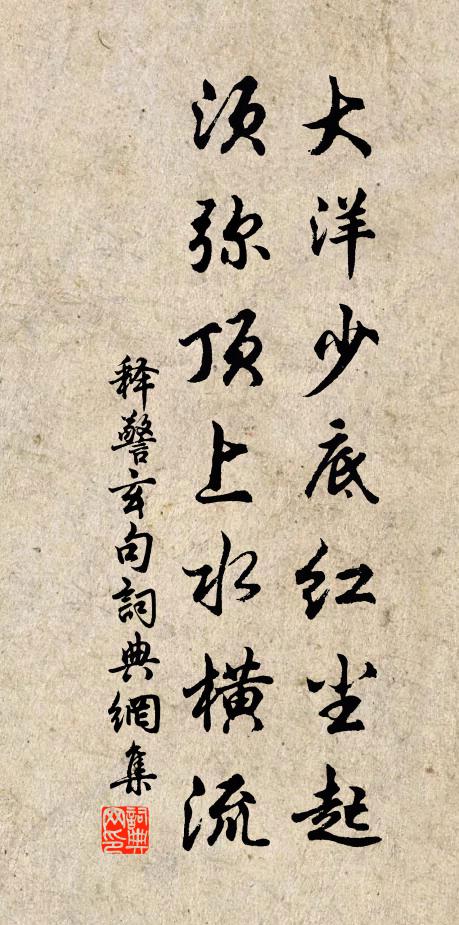 大洋少底红尘起
须弥顶上水横流
释警玄句詞典網集
詞典网印